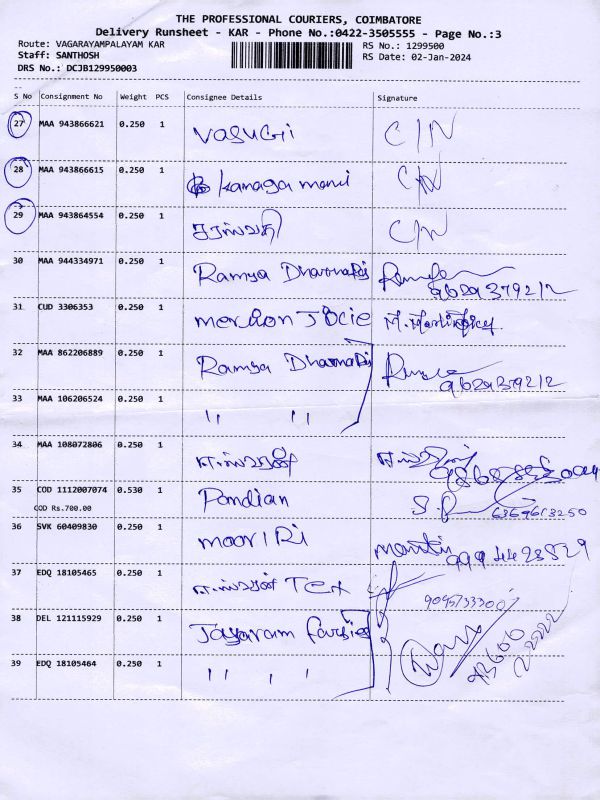 THE PROFESSIONAL COURIERS, COIMBATORE
Delivery Runsheet - KAR - Phone No.:0422-3505555 - Page No.:3
Route: VAGARAYAMPALAYAM KAR RS No.: 1299500
Staff: SANTHOSH RS Date: 02-Jan-2024
DRS No.: DCJB129950003
S No Consignment No Weight PCS Consignee Details Signature
27 MAA 943866621 0.250 1 VasuGi C/N
28 MAA 943866615 0.250 1 Kanaga mani C/N
29 MAA 943864554 0.250 1 சரஸ்வதி C/N
30 MAA 944334971 0.250 1 Ramya 9629379212
31 CUD 3306353 0.250 1
32 MAA 862206889 0.250 1 Ramya 9629379212
33 MAA 106206524 0.250 1 " "
34 MAA 108072806 0.250 1
35 COD 1112007074 0.530 1 Pandian 6369613250
COD Rs.700.00
36 SVK 60409830 0.250 1
37 EDQ 18105465 0.250 1 Tex
38 DEL 121115929 0.250 1 Jayaram
39 EDQ 18105464 0.250 1 " "